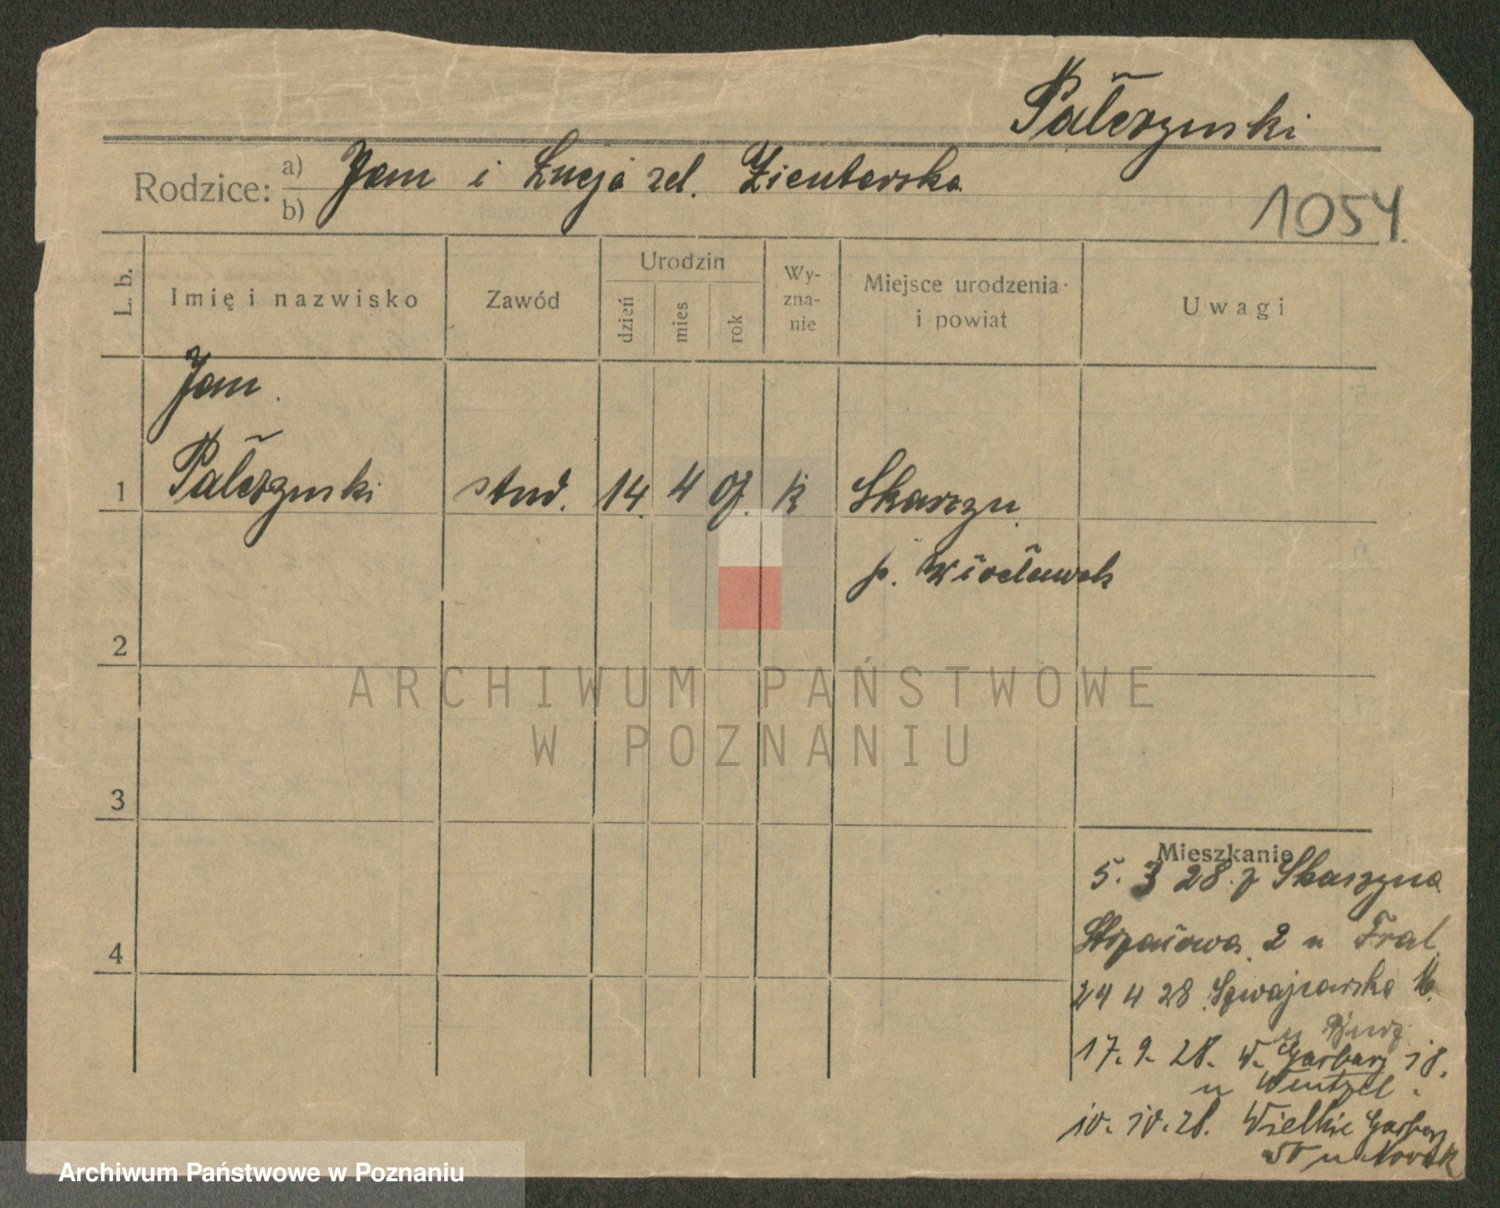 Palczynski
Rodzice: a) b) Jan i Łucja zd. Zientarska
1054.
L. b.
Imię i nazwisko
Zawód
Urodzin
dzień
mies
rok
Wy-
zna-
nie
Miejsce urodzenia
i powiat
Uwagi
Jan
1 Palczynski stud. 14 4 07. k Skarzyn
p. Włocławek
2
3
Mieszkanie
5. 3 28. z Skarzyna
2 u
4
24 4 28 Szwajcarska
u
17. 9. 28. W. Garbary 18.
u Wentzel.
10. 10. 28. Wielkie Garbary
50 u Nowak
ARCHIWUM PAŃSTWOWE
W POZNANIU
Archiwum Państwowe w Poznaniu